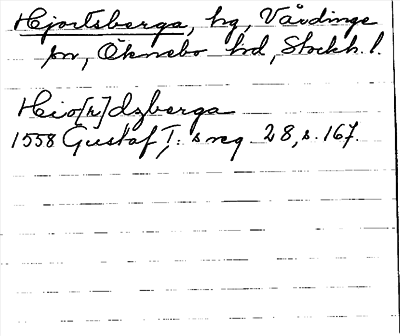 Hjortsberga, hg, Vårdinge
sn, Öknebo hd, Stockh. l.
Hio[r]dzberga
1558 Gustaf I: s reg 28, s. 167.